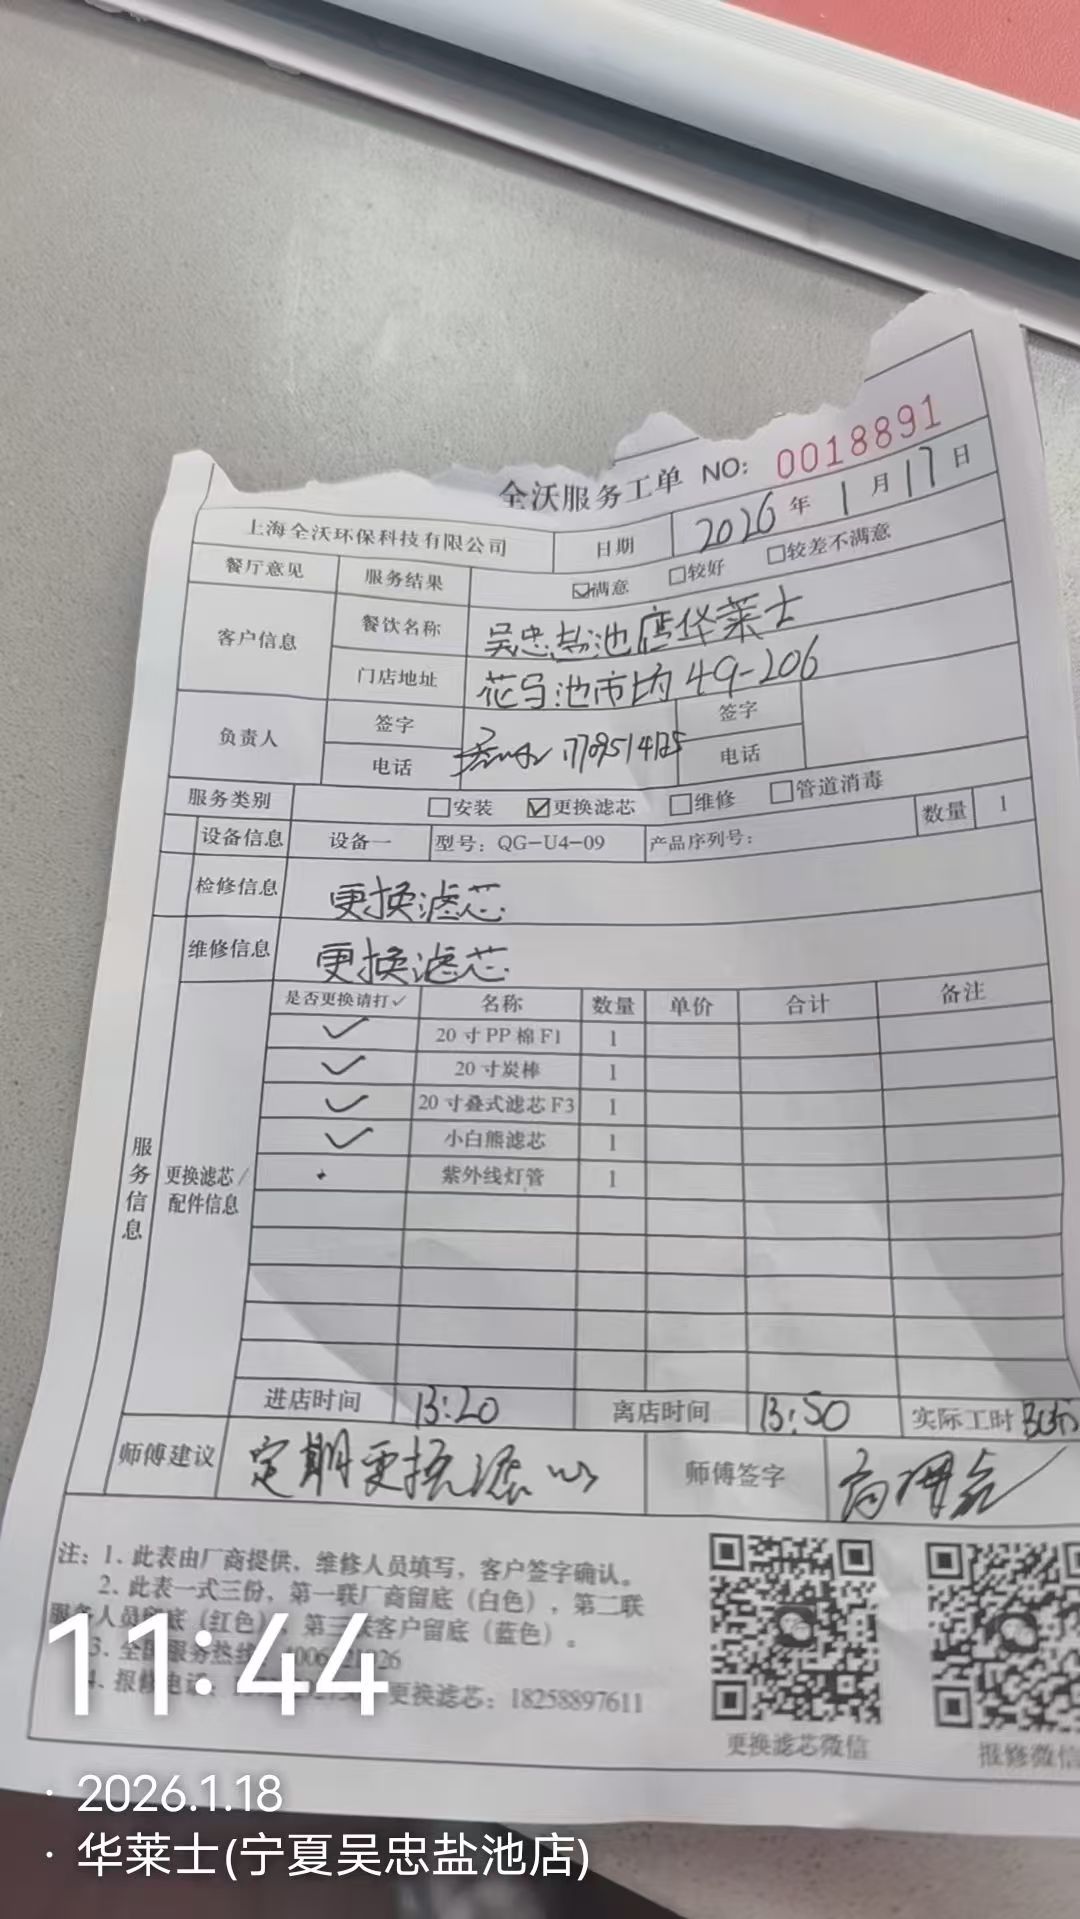 全沃服务工单 NO: 0018891
上海全沃环保科技有限公司 日期 2026年1月17日
餐厅意见 服务结果 ☑满意 □较好 □较差不满意
客户信息 餐饮名称 吴忠盐池店华莱士
门店地址 花马池市场49-206
负责人 签字 签字
电话 电话
服务类别 □安装 ☑更换滤芯 □维修 □管道消毒
设备信息 设备一 型号: QG-U4-09 产品序列号: 数量 1
检修信息 更换滤芯
维修信息 更换滤芯
服务信息
更换滤芯/配件信息
是否更换请打✓ 名称 数量 单价 合计 备注
✓ 20寸PP棉F1 1
✓ 20寸炭棒 1
✓ 20寸叠式滤芯F3 1
✓ 小白熊滤芯 1
紫外线灯管 1
进店时间 13:20 离店时间 13:50 实际工时
师傅建议 定期更换滤芯 师傅签字
注: 1. 此表由厂商提供, 维修人员填写, 客户签字确认。
2. 此表一式三份, 第一联厂商留底 (白色), 第二联
服务人员留底 (红色), 第三联客户留底 (蓝色)。
3. 全国服务热线
4. 报修电话: 更换滤芯: 18258897611
更换滤芯微信 报修微信
11:44
· 2026.1.18
· 华莱士(宁夏吴忠盐池店)